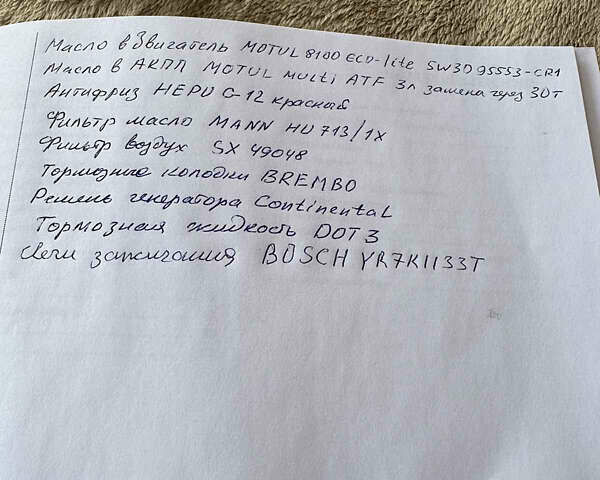 Масло в Двигатель MOTUL 8100 ECO-lite 5W30 95553-CR1
Масло в АКПП MOTUL MULTi ATF 3л замена через 30т
Антифриз HEPU G-12 красный
Фильтр масло MANN HU 713/1X
Фильтр воздух SX 49048
Тормозные колодки BREMBO
Ремень генератора ContinentaL
Тормозная жидкость DOT3
Свечи зажигания BOSCH YR7KII33T